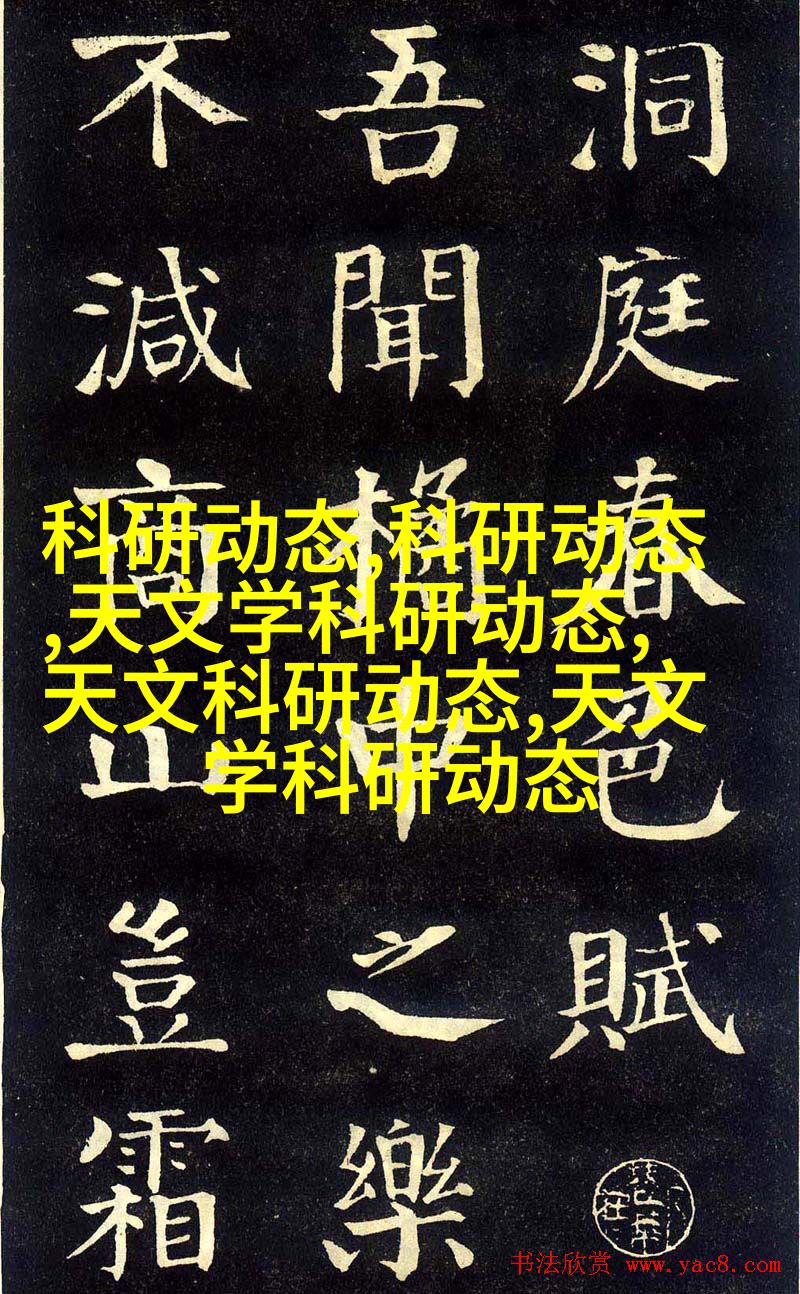 洞庭春色賦
吾聞橘中之樂
不減商山豈霜
科研动态,科研动态
,天文学科研动态,
天文科研动态,天文
学科研动态
书法欣赏 www.yac8.com